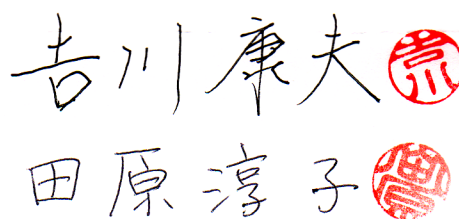 吉川康夫
田原淳子